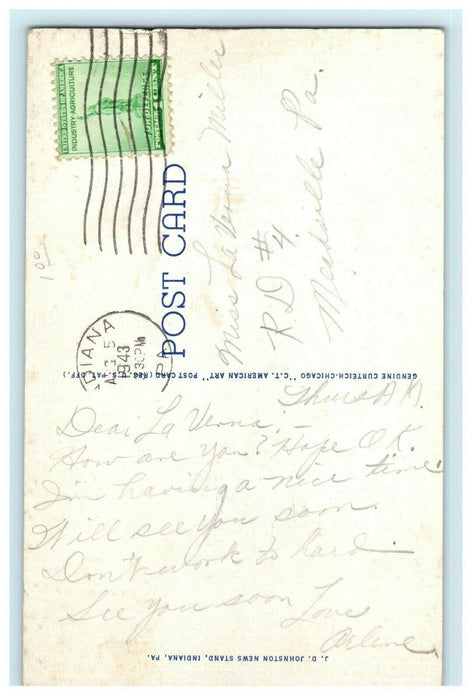 UNITED STATES OF AMERICA
INDUSTRY AGRICULTURE
FOR DEFENSE
POSTAGE 1 CENT
INDIANA
AUG 5
1943
30 PM
PA.
1 00
POST CARD
Miss LaVerna Miller
R.D #4.
Meadville Pa.
GENUINE CURTEICH-CHICAGO "C.T. AMERICAN ART" POST CARD (REG. U.S. PAT. OFF.)
Thurs A.M.
Dear LaVerna, —
How are you? Hope O.K.
I'm having a nice time.
Will see you soon.
Don't work to hard.
See you soon Love
Arlene.
J. D. JOHNSTON NEWS STAND, INDIANA, PA.